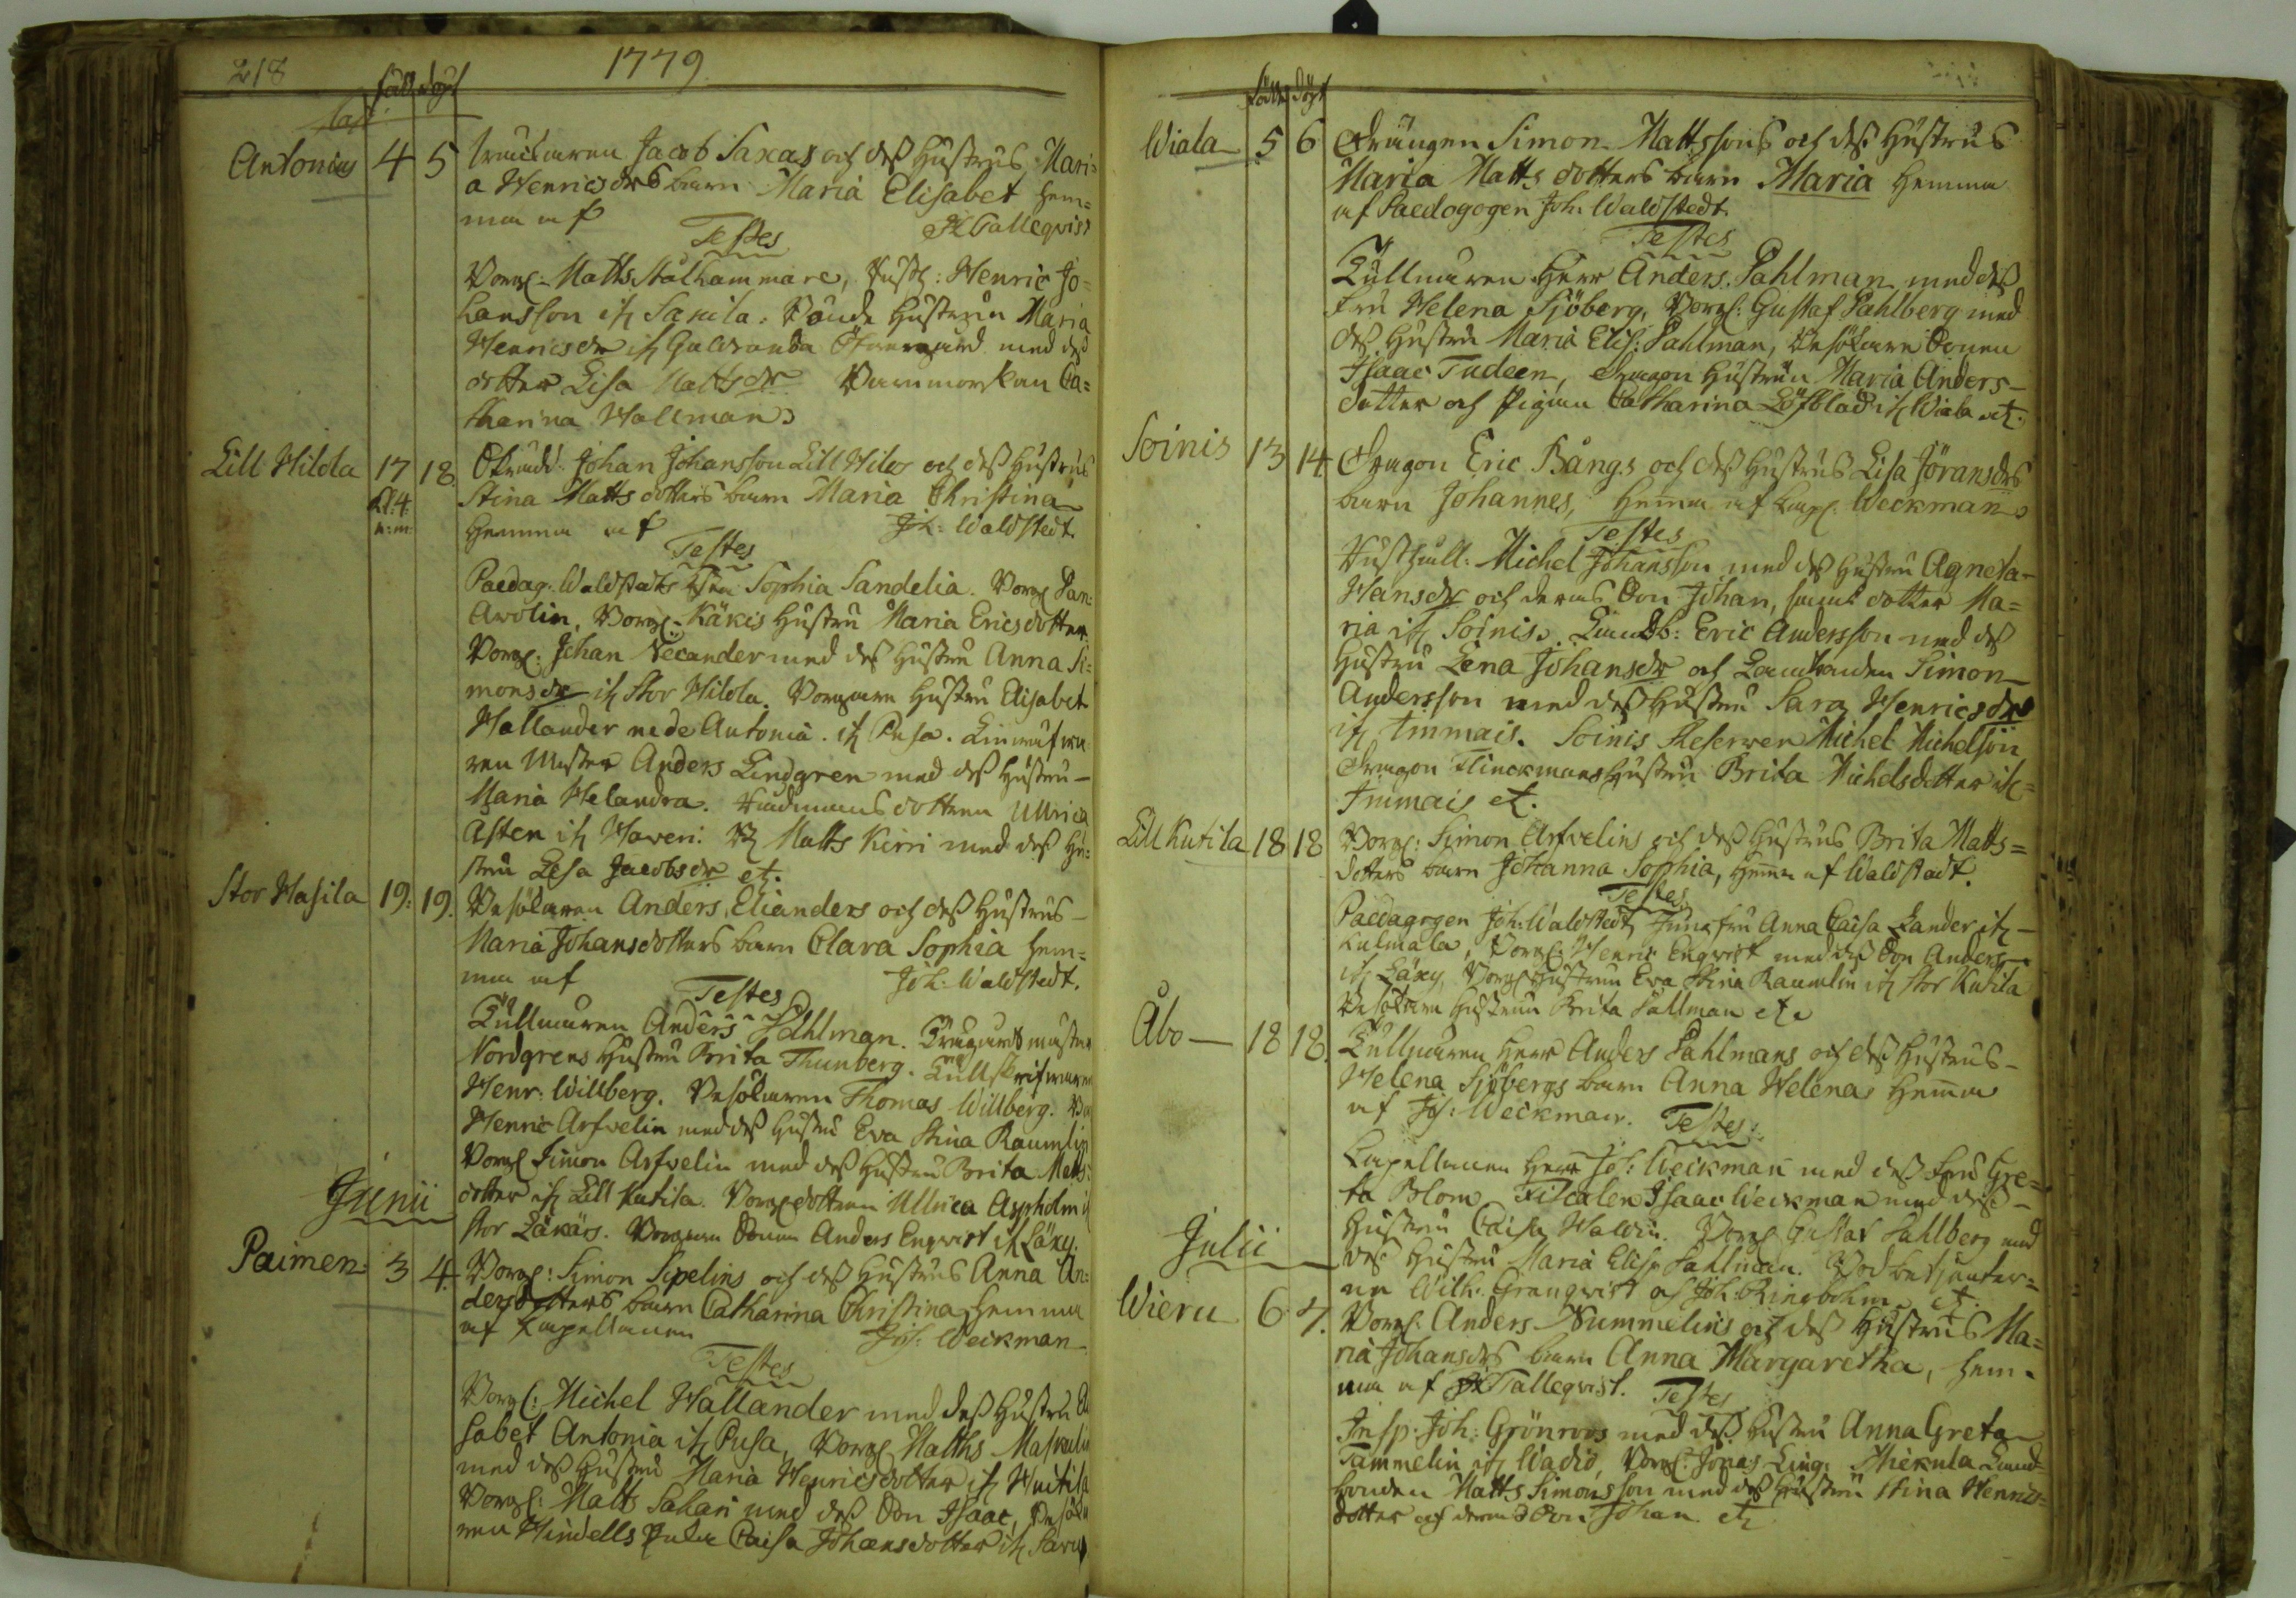 218 1779
född döpt
Antonius 4 5 Jacob Saxas och dess Hustrus Mari=
a Henricsdrs barn Maria Elisabet hem=
ma af HTalleqvist
Testes
Borg: Matts Stålhammare, Rusth: Henric Jo=
hansson ifr Sanila. Bonde Hustrun Maria
Henricsdr ifr Galdranda med dess
dotter Lisa Mattsdr Barnmorskan Ca=
tharina Hallman
Lill Hilola 17 18 Johan Johansson Lill Hilos och dess Hustrus
Kl: 4 Stina Matts dotters barn Maria Christina
e:m: hemma af Joh: Waldstedt.
Testes
Paedag: Waldstedts Sophia Sandelia. Borg Dan:
Avolin, Borg: Käkis Hustru Maria Ericsdotter
Borg: Johan Necander med dess Hustru Anna Si=
monsdr ifr Stor Hilola. Borgaren Hustru Elisabet
Hallander Antonia ifr Pusa.
Mäster Anders Lindgren med dess Hustru
Maria Helandra. dottren Ullrica
Asten ifr Haveri. Matts Kirri med dess Hu=
stru Lisa Jacobsdr etc.
Stor Hasila 19. 19. Besökaren Anders Elianders och dess Hustrus
Maria Johansdotters barn Clara Sophia hem=
ma af Joh: Waldstedt.
Testes
Tullnären Anders Pahlman. Krigsrådmästar
Nordgrens Hustru Brita Thunberg. Tullskrifvaren
Henr: Willberg. Besökaren Thomas Willberg.
Henric Arfvelin med dess Hustru Eva Stina Raumlin
Borg Simon Arfvelin med dess Hustru Brita Matts=
dotter ifr Lill Kutila. Borg dottren Ullrica Aspholm
Stor Läkärs. Borgaren Sonen Anders Enqvist ifr Läxy.
Junii
Paimen 3 4. Borg: Simon Sipelius och dess Hustrus Anna An=
dersdotters barn Catharina Christina hemma
af Kapellanen Joh: Weckman
Testes
Borg: Michel Hallander med dess Hustru
sabet Antonia ifr Pusa, Borg Matths Maskulin
med dess Hustru Maria Henricsdotter ifr Huitila
Borg: Matts Sahari med dess Son Isaac,
Hindells Caisa Johansdotter ifr
född döpt
Wiala 5 6 Drängen Simon Mattssons och dess Hustrus
Maria Matts dotters barn Maria hemma
af Paedagogen Joh: Waldstedt.
Testes
Tullnären Herr Anders Pahlman med dess
Fru Helena Sjöberg, Borg: Gustaf Pahlberg med
dess Hustru Maria Elis: Pahlman, Besökare Sonen
Isaac Tudeen, Dragon Hustrun Maria Anders-
dotter och Pigan Catharina Löfblad ifr Wiala etc.
Soinis 13 14. Dragon Eric Bångs och dess Hustrus Lisa Jöransdrs
barn Johannes, hemma af Capl: Weckman
Testes
Rusthåll: Michel Johansson med dess Hustru Agneta
Hansdr och deras Son Johan, samt dotter Ma=
ria ifr Soinis. Landb: Eric Andersson med dess
Hustru Lena Johansdr och Landbonden Simon
Andersson med dess Hustru Sara Henricsdr
ifr Immais. Soinis Reserven Michel Michelson
Dragon Flinckmans Hustru Brita Michelsdotter ifr
Immais etc.
Lill Kutila 18 18 Borg: Simon Arfvelins och dess Hustrus Brita Matts=
dotters barn Johanna Sophia, hemma af Waldstedt.
Testes
Paedagogen Joh: Waldstedt, Jungfru Anna Caisa Lander ifr
Kulmala, Borg: Henric Enqvist med dess Son Anders
ifr Läxy, Borg Hustrun Eva Stina Raumlin ifr Stor Kutila
Besökare Hustrun Brita Sallman etc
Åbo 18 18. Tullnären Herr Anders Pahlmans och dess Hustrus
Helena Sjöbergs barn Anna Helena hemma
af Joh: Weckman. Testes
Capellanen Herr Joh: Weckman med dess Fru Gre=
ta Blom Fiscalen Isaac Weckman med dess
Hustru Caisa Waldin. Borg Gustaf Pahlberg med
dess Hustru Maria Elis: Pahlman. Bod betjenter=
ne Wilh: Granqvist och Joh: Ringbohm etc.
Julii
Wieru 6 7. Borg: Anders Nummelins och dess Hustrus Ma=
ria Johansdrs barn Anna Margaretha, hem=
ma af HTalleqvist. Testes
Insp: Joh: Grönroos med dess Hustru Anna Greta
Tammelin ifr Wadiö, Borg: Jonas Ling: Mickula Land=
bonden Matts Simonsson med dess Hustru Stina Henrics=
dotter och deras Son Johan etc